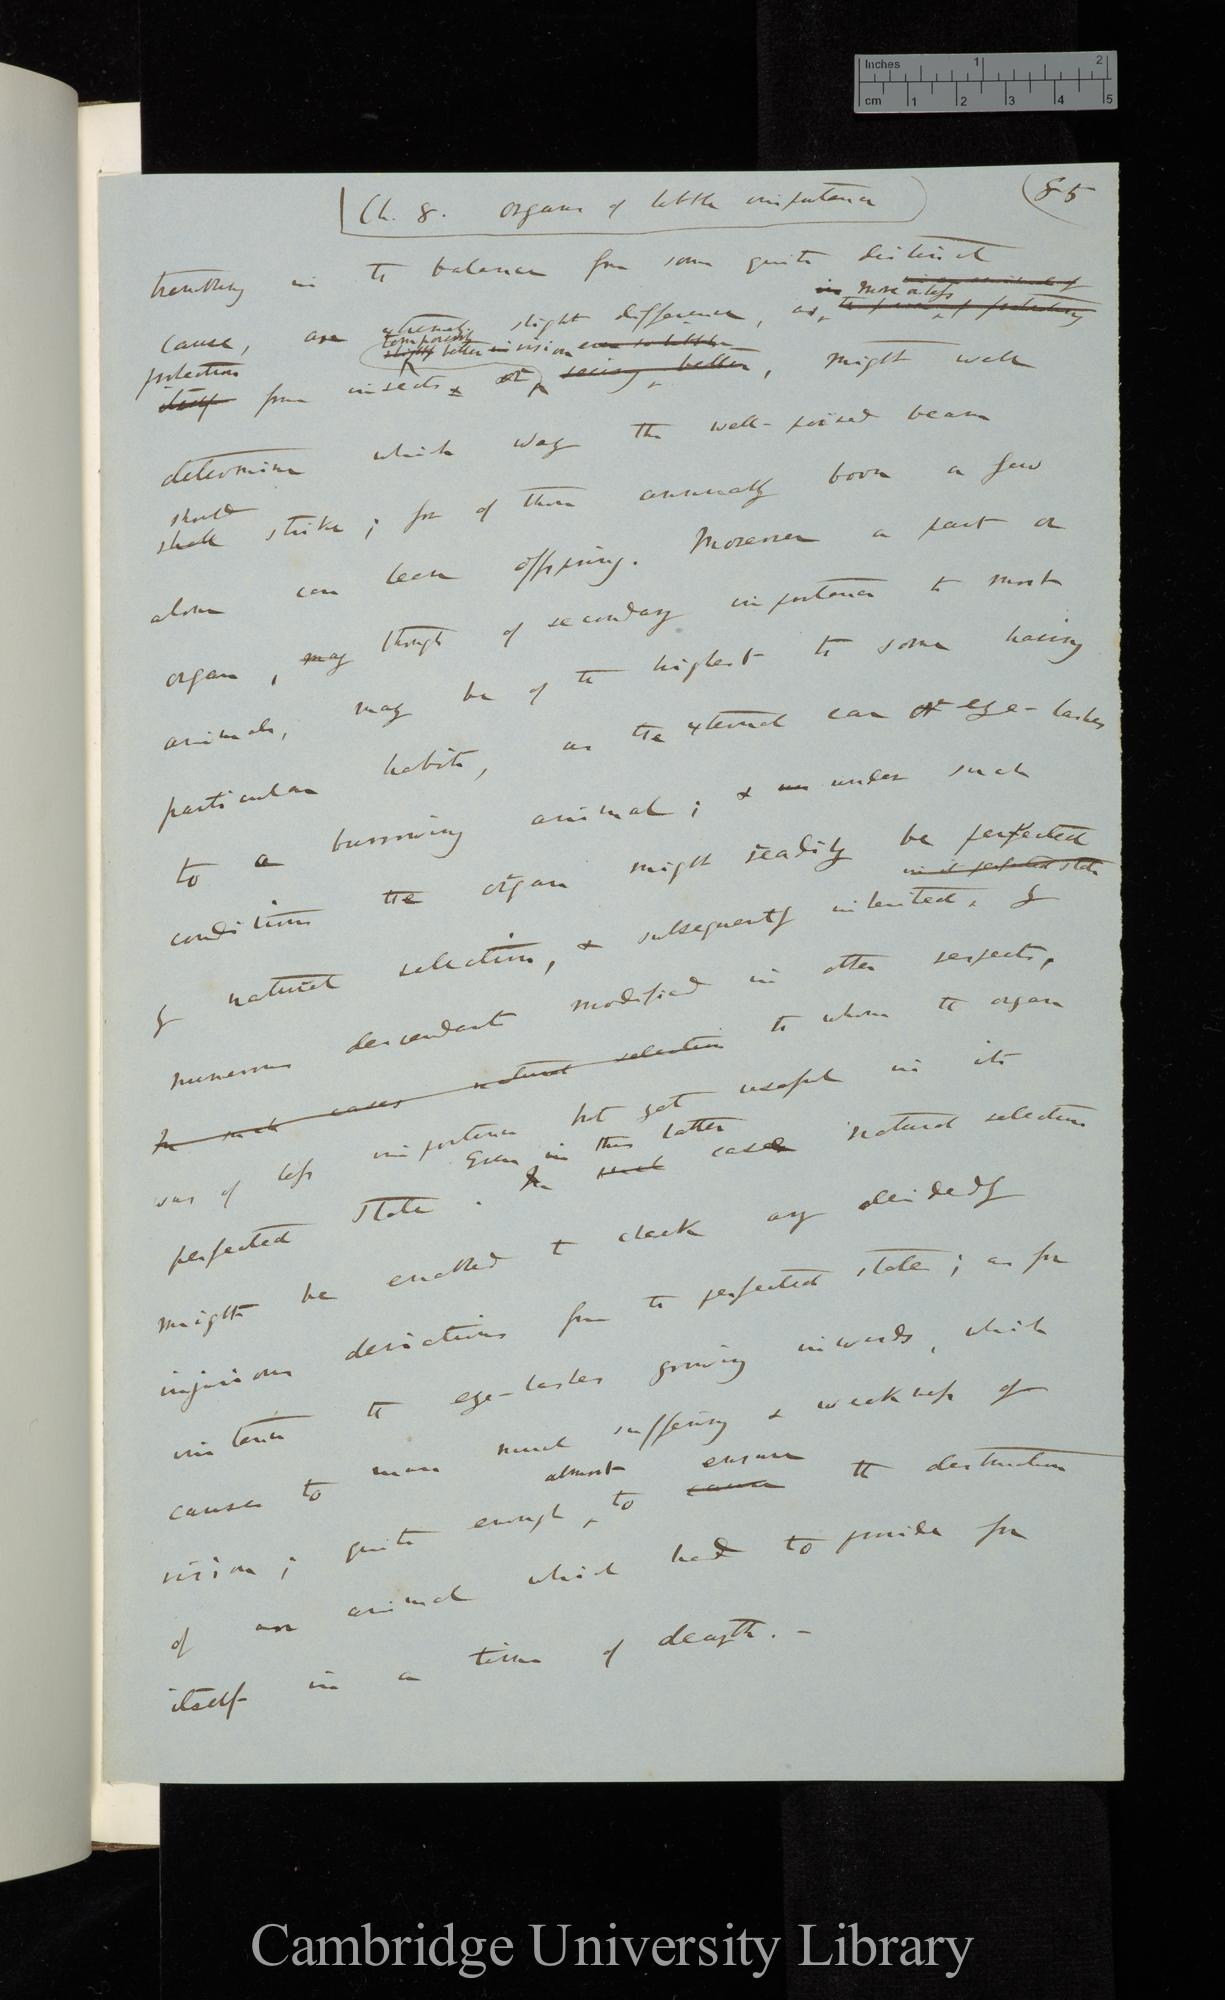 Inches 1 2
cm 1 2 3 4 5
Ch. 8. Organs of little importance
85
trembling in the balance from some quite distinct
cause, an extremely slight difference, as more or less
protection from insects & or temporarily better vision, might well
determine which way the well-poised beam
should
shall strike; for of those annually born a few
alone can leave offspring. Moreover a part or
organ, may though of secondary importance to most
animals, may be of the highest to some having
particular habits, as the external ear or eye-lashes
to a burrowing animal; & under such
conditions the organ might readily be perfected
in its perfected state
by natural selection, & subsequently inherited, by
numerous descendants modified in other respects,
In such cases natural selection to whom the organ
was of less importance but yet useful in its
Even in this latter
perfected state. In such cases natural selection
might be enabled to check any decidedly
injurious deviations from the perfected state; as for
instance the eye-lashes growing inwards, which
causes to man much suffering & weakness of
almost ensure
vision; quite enough, to cause the destruction
of an animal which had to provide for
itself in a time of dearth. –
Cambridge University Library